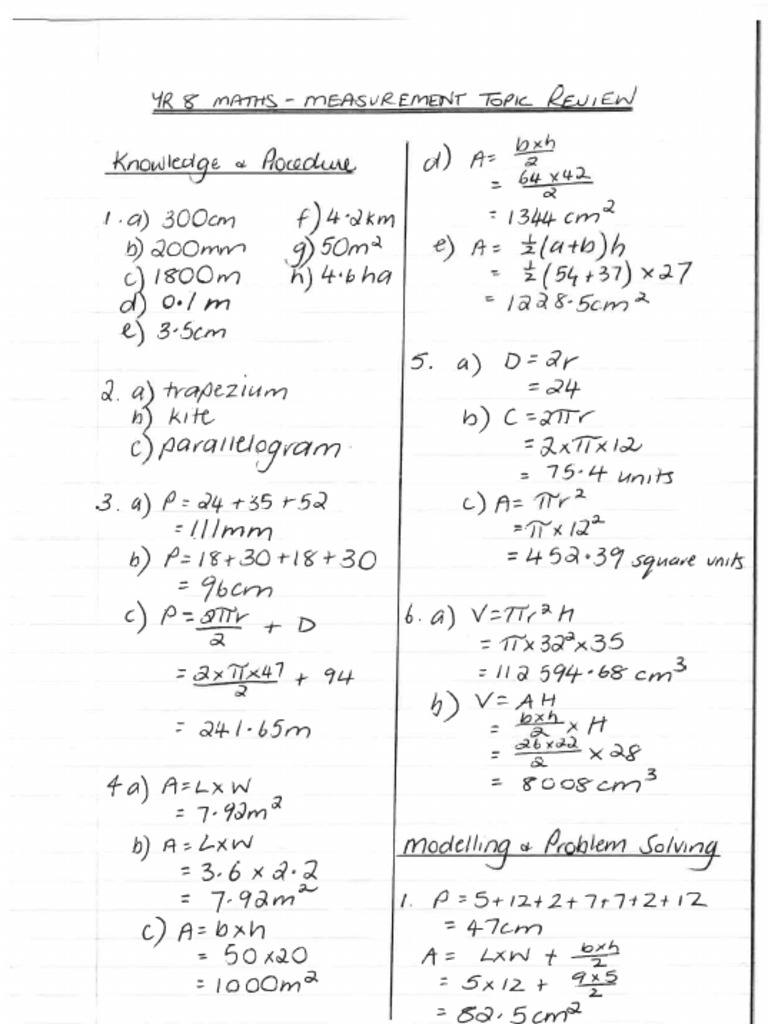 YR 8 MATHS - MEASUREMENT TOPIC REVIEW
Knowledge & Procedure
1. a) 300cm
b) 200mm
c) 1800m
d) 0.1 m
e) 3.5cm
f) 4.2km
g) 50m²
h) 4.6ha
2. a) trapezium
b) kite
c) parallelogram
3. a) P = 24 + 35 + 52
= 111mm
b) P = 18 + 30 + 18 + 30
= 96cm
c) P = 2πr/2 + D
= 2×π×47/2 + 94
= 241.65m
4 a) A = L × W
= 7.92m²
b) A = L × W
= 3.6 × 2.2
= 7.92m²
c) A = b × h
= 50 × 20
= 1000m²
d) A = b×h/2
= 64 × 42/2
= 1344 cm²
e) A = ½(a+b)h
= ½(54+37) × 27
= 1228.5cm²
5. a) D = 2r
= 24
b) C = 2πr
= 2×π×12
= 75.4 units
c) A = πr²
= π × 12²
= 452.39 square units
6. a) V = πr²h
= π × 32² × 35
= 112 594.68 cm³
b) V = AH
= b×h/2 × H
= 26×22/2 × 28
= 8008cm³
Modelling & Problem Solving
1. P = 5+12+2+7+7+2+12
= 47cm
A = L×W + b×h/2
= 5×12 + 9×5/2
= 82.5cm²